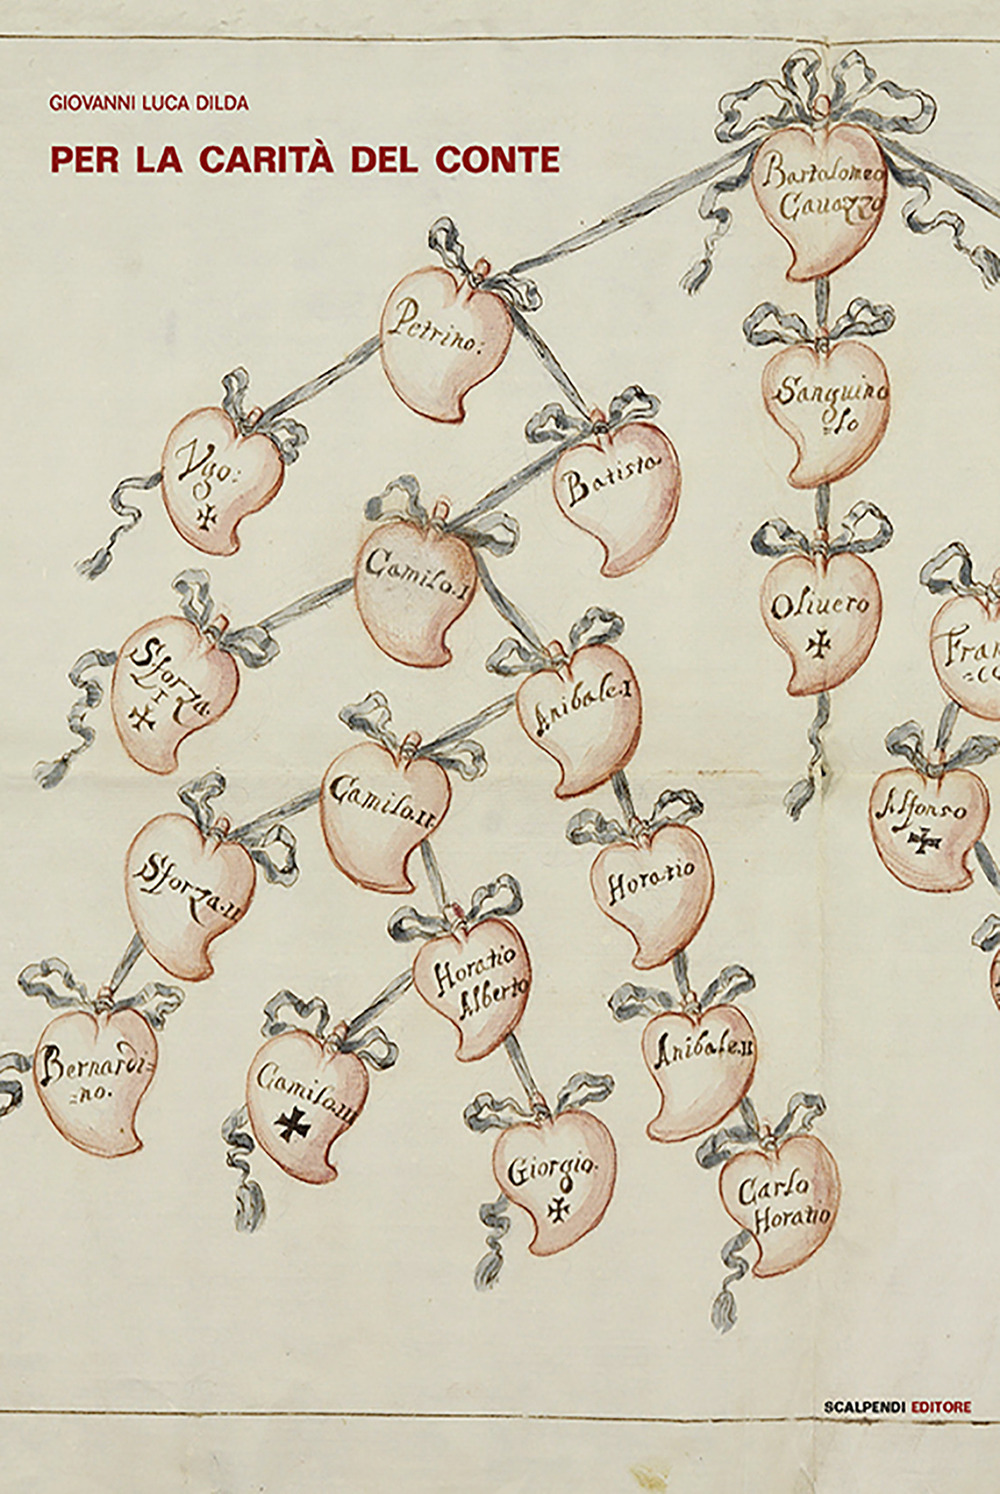 GIOVANNI LUCA DILDA
PER LA CARITÀ DEL CONTE
Bartalomeo
Cauazzo
Petrino:
Sanguino
=lo
Vgo:
Batista
Camilo.I
Oliuero
Sforza.
I
Anibale.I
Fran
=co
Camilo.II
Alfonso
Sforza.II
Horatio
Horatio
Alberto
Bernardi=
=no.
Camilo.III
Anibale.II
Giorgio.
Carlo
Horatio
SCALPENDI EDITORE